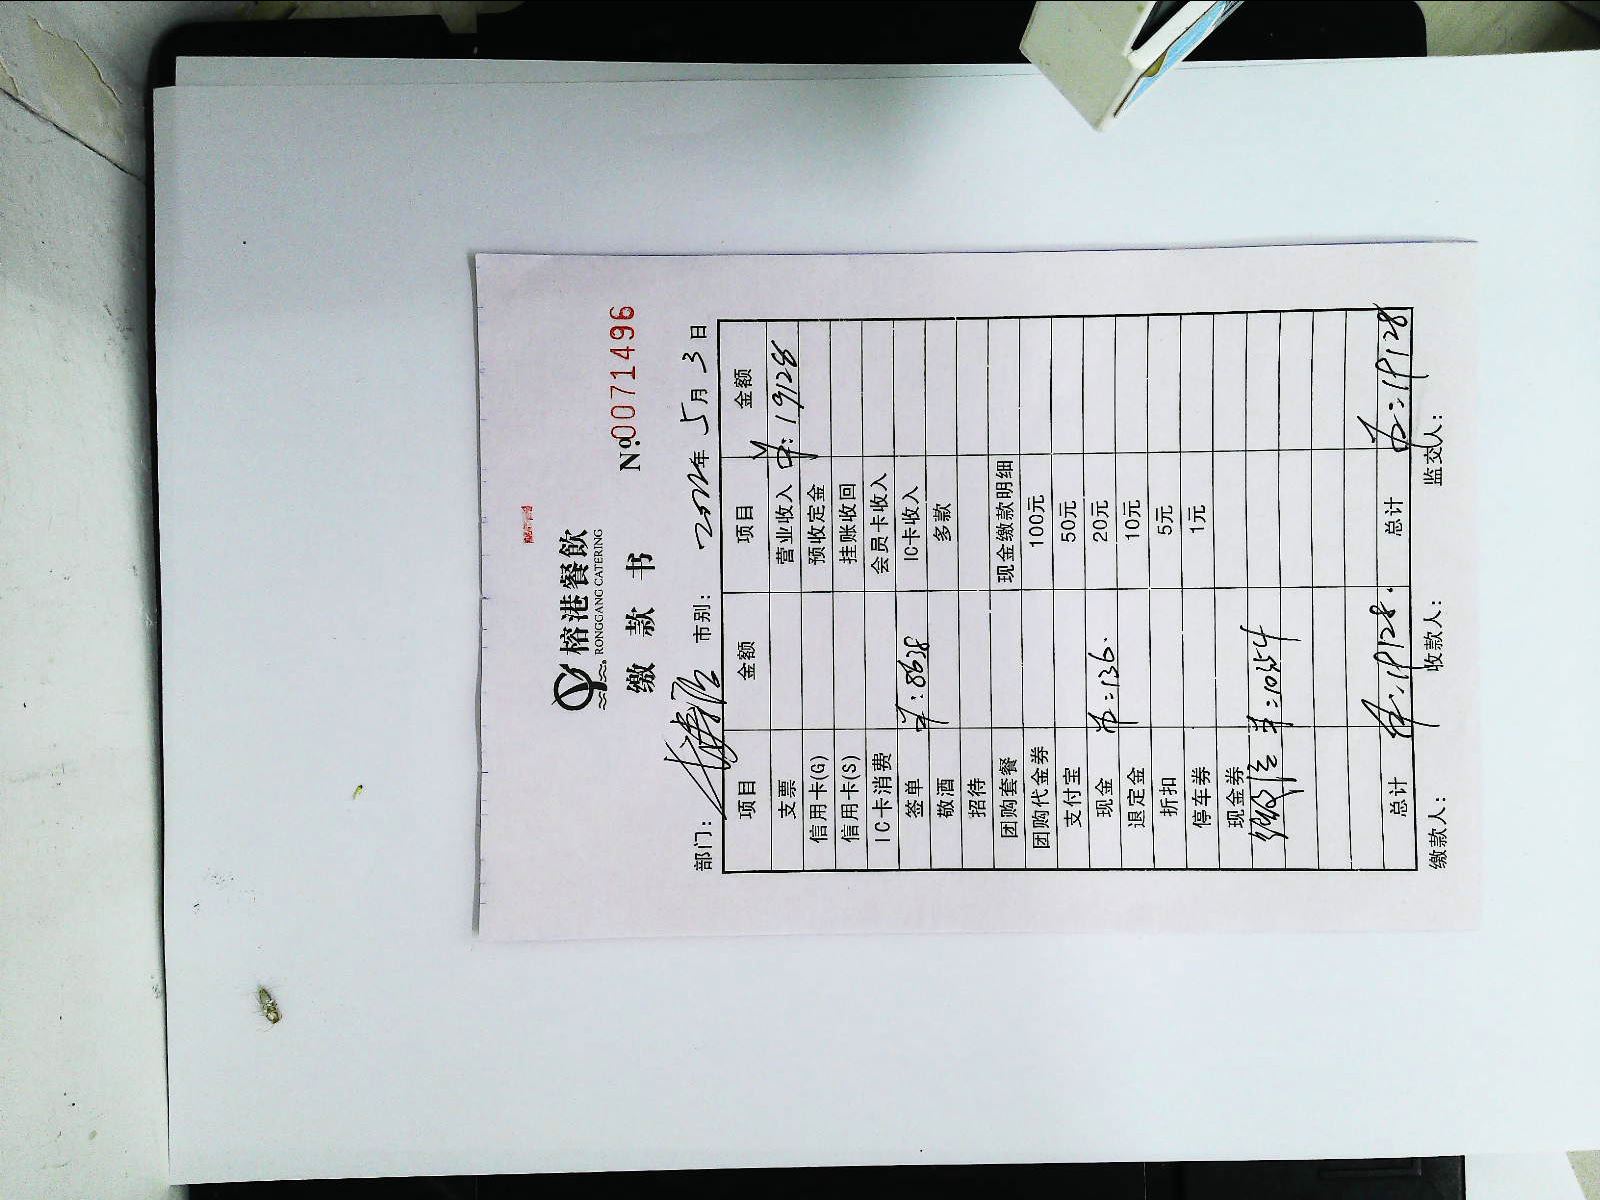 榕港餐飲
RONGGANG CATERING
缴 款 书
Nº.0071496
部门： 市别： 2022年 5月 3日
项目 金额 项目 金额
支票 营业收入 19128
信用卡(G) 预收定金
信用卡(S) 挂账收回
IC卡消费 会员卡收入
签单 8638 IC卡收入
敬酒 多款
招待
团购套餐 现金缴款明细
团购代金券 100元
支付宝 50元
现金 136. 20元
退定金 10元
折扣 5元
停车券 1元
现金券
10354
总计 19128. 总计 19128
缴款人： 收款人： 监交人：